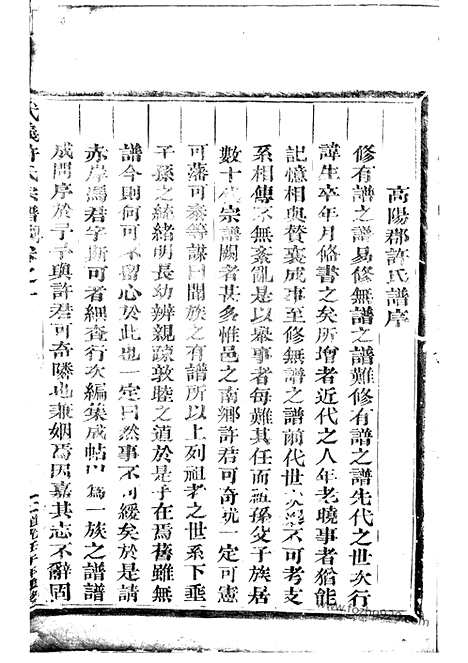 高陽郡許氏譜序
修有譜之譜易修無譜之譜難修有譜之譜先代之世次行
諱生卒年月俻書之矣所增者近代之人年老曉事者猶能
記憶相與贊襄成事至修無譜之譜前代世次 不可考支
系相傳不無紊亂是以舉事者每難其任而祖孫父子族居
數十 宗譜闕者甚多惟邑之南鄉許君可奇 一定可憲
可藩可泰等謀曰聞族之有譜所以上列祖考之世系下垂
子孫之統緒明長幼辨親疎敦睦之道於是乎在焉舊雖無
譜今則何可不留心於此也一定曰然事不可緩矣於是請
赤岸馮君字斯可者細查行次編集成帖以為一族之譜譜
成問序於予予與許君可奇隣也兼姻焉因嘉其志不辭固
武義許氏宗譜 卷之一
www.fozhupu.com